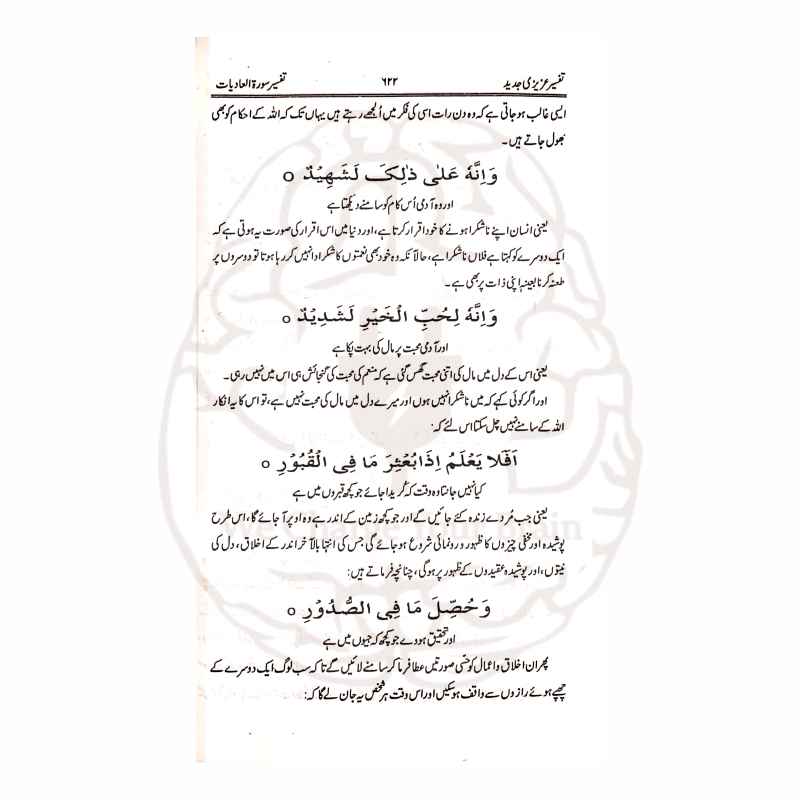 تفسیر عزیزی جدید ۶۲۲ تفسیر سورۃ العادیات
ایسی غالب ہو جاتی ہے کہ وہ دن رات اسی کی فکر میں اُلجھے رہتے ہیں یہاں تک کہ اللہ کے احکام کو بھی
بھول جاتے ہیں۔
وَاِنَّهٗ عَلٰى ذٰلِکَ لَشَهِيْدٌ o
اور وہ آدمی اُس کام کو سامنے دیکھتا ہے
یعنی انسان اپنے ناشکرا ہونے کا خود اقرار کرتا ہے، اور دنیا میں اس اقرار کی صورت یہ ہوتی ہے کہ
ایک دوسرے کو کہتا ہے فلاں ناشکرا ہے، حالانکہ وہ خود بھی نعمتوں کا شکر ادا نہیں کر رہا ہوتا تو دوسروں پر
طعنہ کرنا بعینہٖ اپنی ذات پر بھی ہے۔
وَاِنَّهٗ لِحُبِّ الْخَيْرِ لَشَدِيْدٌ o
اور آدمی محبت پر مال کی بہت پکا ہے
یعنی اس کے دل میں مال کی اتنی محبت گھس گئی ہے کہ منعم کی محبت کی گنجائش ہی اس میں نہیں رہی۔
اور اگر کوئی کہے کہ میں ناشکرا نہیں ہوں اور میرے دل میں مال کی محبت نہیں ہے، تو اس کا یہ انکار
اللہ کے سامنے نہیں چل سکتا اس لئے کہ:
اَفَلَا يَعْلَمُ اِذَا بُعْثِرَ مَا فِی الْقُبُوْرِ o
کیا نہیں جانتا وہ وقت کہ کُریدا جائے جو کچھ قبروں میں ہے
یعنی جب مُردے زندہ کئے جائیں گے اور جو کچھ زمین کے اندر ہے وہ اوپر آ جائے گا، اس طرح
پوشیدہ اور مخفی چیزوں کا ظہور و رونمائی شروع ہو جائے گی جس کی انتہا بالآخر اندر کے اخلاق، دل کی
نیتوں، اور پوشیدہ عقیدوں کے ظہور پر ہوگی، چنانچہ فرماتے ہیں:
وَحُصِّلَ مَا فِی الصُّدُوْرِ o
اور تحقیق ہووے جو کچھ کہ جیوں میں ہے
پھر ان اخلاق و اعمال کو حسّی صورتیں عطا فرما کر سامنے لائیں گے تاکہ سب لوگ ایک دوسرے کے
چھپے ہوئے رازوں سے واقف ہو سکیں اور اس وقت ہر شخص یہ جان لے گا کہ: